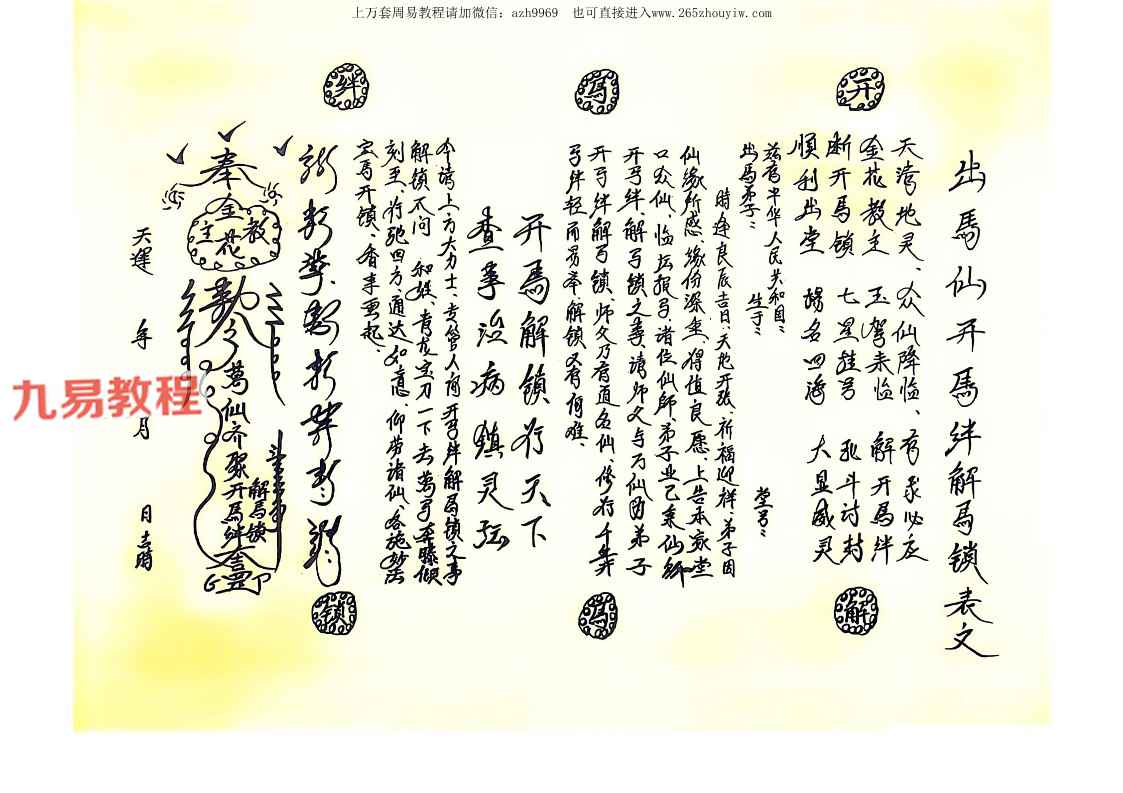 上万套周易教程请加微信：azh9969 也可直接进入www.265zhouyiw.com
出馬仙开馬绊解馬锁表文
开
解
天湾地灵、众仙降临、有求必应
金花教主 玉驾来临 解开馬绊
断开馬锁 七星挂 北斗讨封
順利出堂 揚名四海 大显威灵
兹有中华人民共和国
生于
堂号
出馬弟子
時逢良辰吉日、天地开张、祈福迎祥、弟子因
仙缘所感、缘份深重、将值良愿、上告本家堂
口众仙、临坛报号、诸位仙師、弟子业已秉仙師
开马绊、解马锁之事、請师父与万仙弟子
开马绊解马锁、师父乃有道名仙、修行千年
马绊轻而易举、解锁又有何难、
馬
馬
开馬解锁行天下
查事治病镇灵坛
本请上方大力士、专管人间开马绊解馬锁之事
解锁不问 青龙宝刀一下去萬马奔腾
刻至、行驰四方、通达如意、仰劳诸仙、各施妙法
宝馬开锁、香来
绊
锁
奉
金花教主
勅令
萬仙齐聚开馬绊
解馬锁
天運 年 月 日 時
九易教程